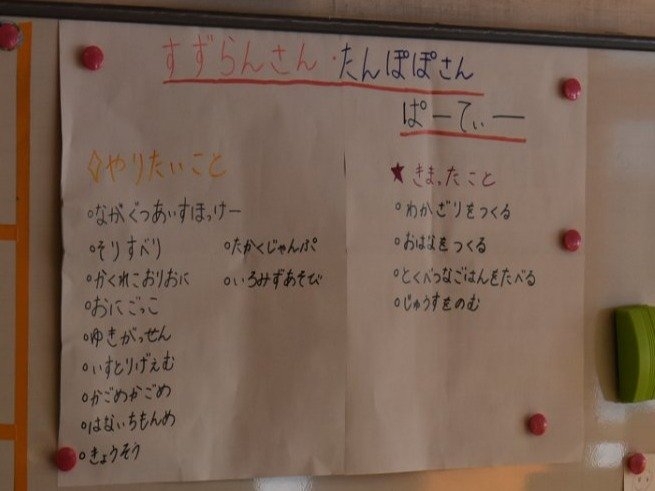 すずらんさん・たんぽぽさん
ぱーてぃー
◇やりたいこと
○ながぐつあいすほっけー
○そりすべり
○かくれこおりおに
○おにごっこ
○ゆきがっせん
○いすとりげえむ
○かごめかごめ
○はないちもんめ
○きょうそう
○たかくじゃんぷ
○いろみずあそび
★きまったこと
○わかざりをつくる
○おはなをつくる
○とくべつなごはんをたべる
○じゅうすをのむ